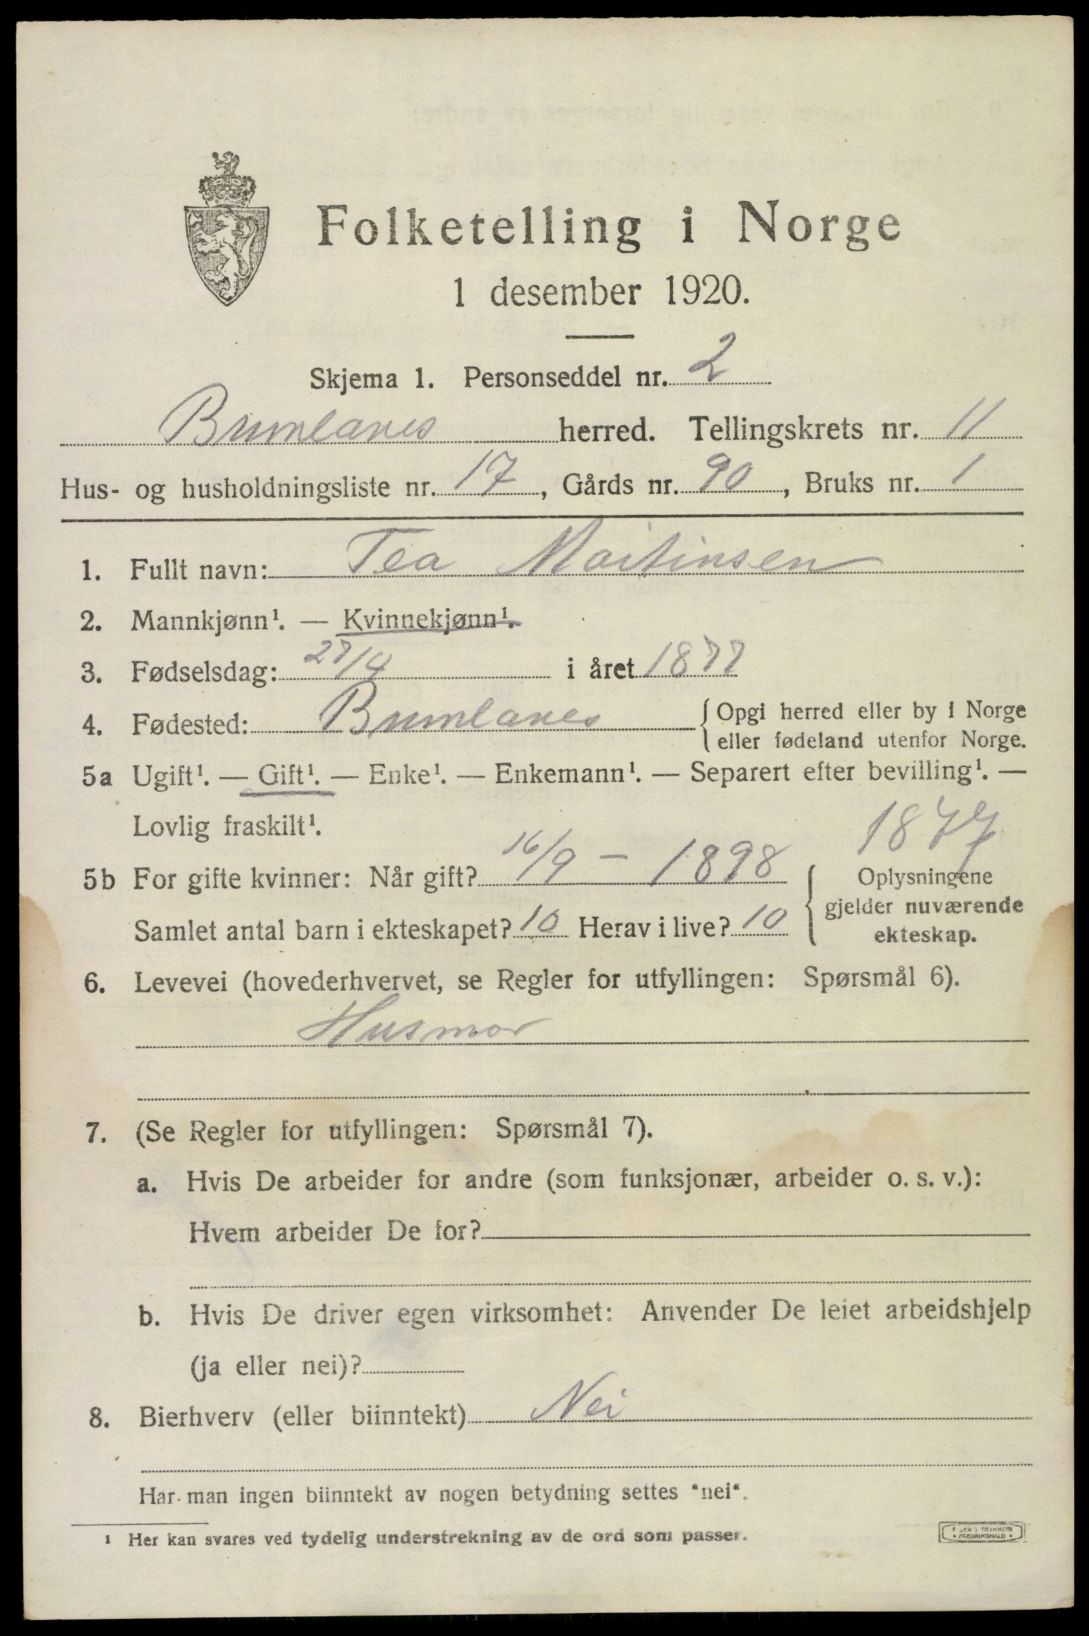 Folketelling i Norge
1 desember 1920.
Skjema 1. Personseddel nr. 2
Brunlanes herred. Tellingskrets nr. 11
Hus- og husholdningsliste nr. 17, Gårds nr. 90, Bruks nr. 1
1. Fullt navn: Tea Martinsen
2. Mannkjønn¹. — Kvinnekjønn¹.
3. Fødselsdag: 27/4 i året 1877
4. Fødested: Brunlanes {Opgi herred eller by i Norge
eller fødeland utenfor Norge.
5a Ugift¹. — Gift¹. — Enke¹. — Enkemann¹. — Separert efter bevilling¹. —
Lovlig fraskilt¹. 1877
5b For gifte kvinner: Når gift? 16/9 – 1898 { Oplysningene
gjelder nuværende
Samlet antal barn i ekteskapet? 10 Herav i live? 10 ekteskap.
6. Levevei (hovederhvervet, se Regler for utfyllingen: Spørsmål 6).
Husmor
7. (Se Regler for utfyllingen: Spørsmål 7).
a. Hvis De arbeider for andre (som funksjonær, arbeider o. s. v.):
Hvem arbeider De for?
b. Hvis De driver egen virksomhet: Anvender De leiet arbeidshjelp
(ja eller nei)?
8. Bierhverv (eller biinntekt) Nei
Har man ingen biinntekt av nogen betydning settes "nei".
¹ Her kan svares ved tydelig understrekning av de ord som passer.